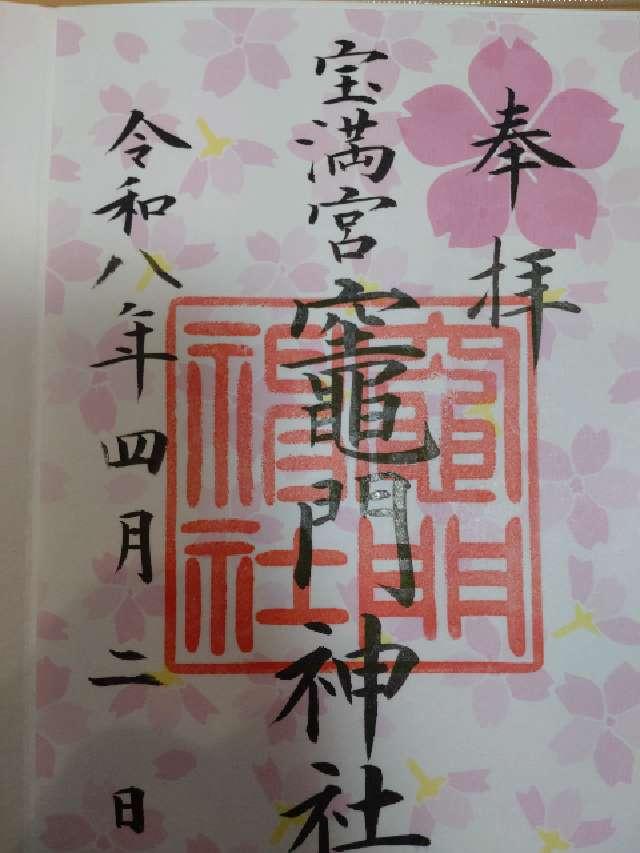 奉拝
宝満宮竈門神社
竈門神社
令和八年四月二日